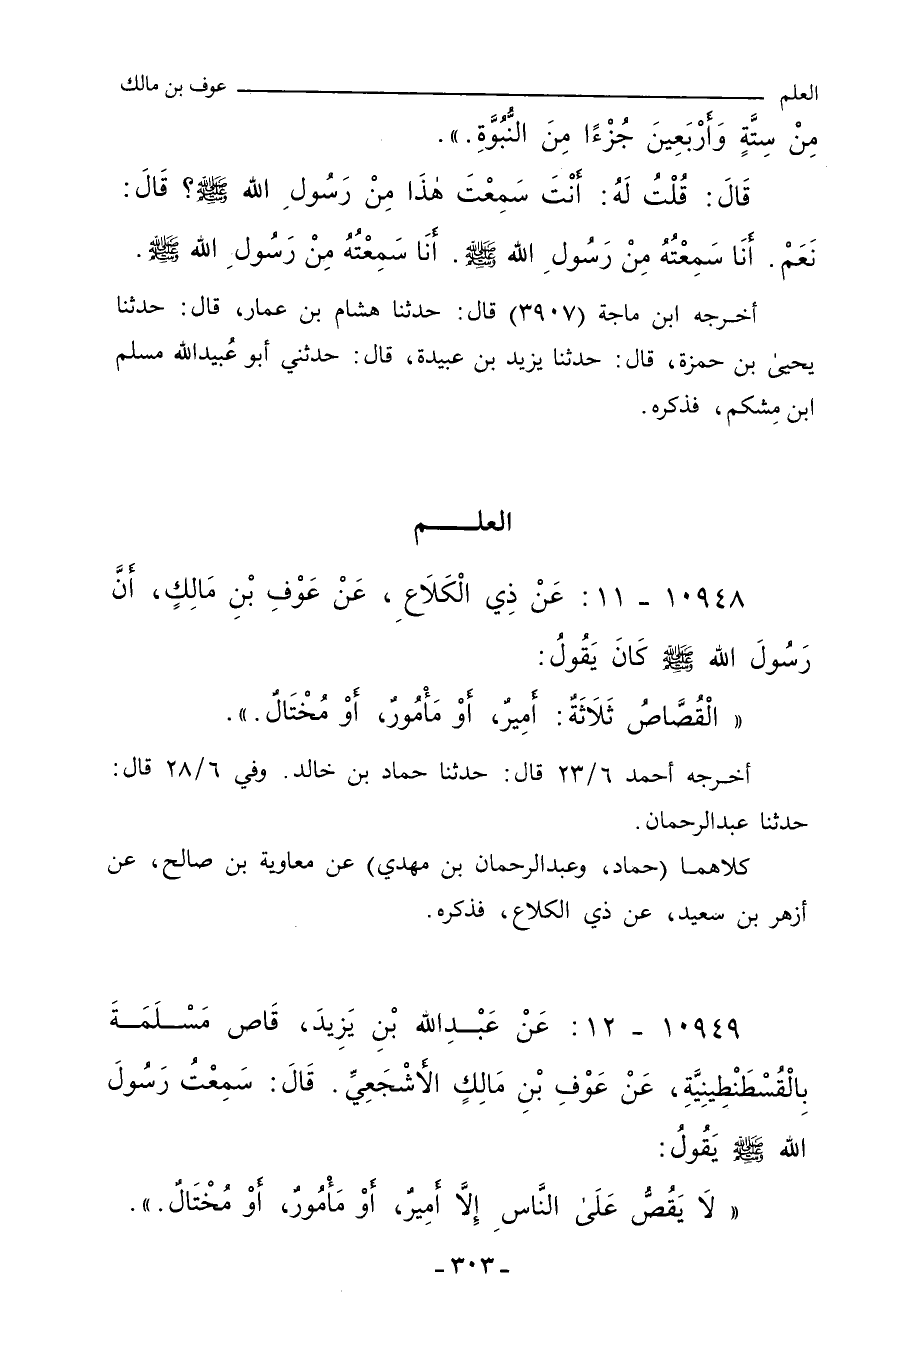 العلم ــــــــــــــــــــــــــــــــ عوف بن مالك
مِنْ سِتَّةٍ وَأَرْبَعِينَ جُزْءًا مِنَ النُّبُوَّةِ.».
قَالَ: قُلْتُ لَهُ: أَنْتَ سَمِعْتَ هٰذَا مِنْ رَسُولِ الله ﷺ؟ قَالَ:
نَعَمْ. أَنَا سَمِعْتُهُ مِنْ رَسُولِ الله ﷺ. أَنَا سَمِعْتُهُ مِنْ رَسُولِ الله ﷺ.
أخـرجه ابن ماجة (٣٩٠٧) قال: حدثنا هشام بن عمار، قال: حدثنا
يحيىٰ بن حمزة، قال: حدثنا يزيد بن عبيدة، قال: حدثني أبو عُبيدالله مسلم
ابن مِشكم، فذكره.
العلـــــم
١٠٩٤٨ ـ ١١: عَنْ ذِي الْكَلَاعِ، عَنْ عَوْفِ بْنِ مَالِكٍ، أَنَّ
رَسُولَ الله ﷺ كَانَ يَقُولُ:
« الْقُصَّاصُ ثَلَاثَةٌ: أَمِيرٌ، أَوْ مَأْمُورٌ، أَوْ مُخْتَالٌ.».
أخـرجه أحمد ٢٣/٦ قال: حدثنا حماد بن خالد. وفي ٢٨/٦ قال:
حدثنا عبدالرحمان.
كلاهمـا (حماد، وعبدالرحمان بن مهدي) عن معاوية بن صالح، عن
أزهر بن سعيد، عن ذي الكلاع، فذكره.
١٠٩٤٩ ـ ١٢: عَنْ عَبْـدِالله بْنِ يَزِيدَ، قَاص مَسْـلَمَـةَ
بِالْقُسْطَنْطِينِيَّةِ، عَنْ عَوْفِ بْنِ مَالِكٍ الأَشْجَعِيِّ. قَالَ: سَمِعْتُ رَسُولَ
الله ﷺ يَقُولُ:
« لَا يَقُصُّ عَلَىٰ النَّاسِ إِلَّا أَمِيرٌ، أَوْ مَأْمُورٌ، أَوْ مُخْتَالٌ.».
ـ ٣٠٣ ـ